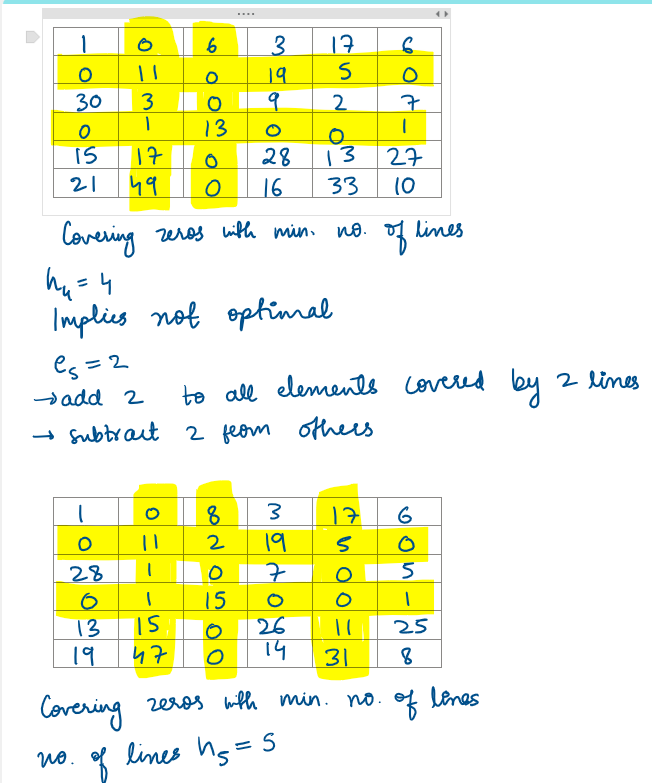 1 0 6 3 17 6
0 11 0 19 5 0
30 3 0 9 2 7
0 1 13 0 0 1
15 17 0 28 13 27
21 49 0 16 33 10
Covering zeros with min. no. of lines
h₄ = 4
Implies not optimal
e₅ = 2
→ add 2 to all elements covered by 2 lines
→ subtract 2 from others
1 0 8 3 17 6
0 11 2 19 5 0
28 1 0 7 0 5
0 1 15 0 0 1
13 15 0 26 11 25
19 47 0 14 31 8
Covering zeros with min. no. of lines
no. of lines h₅ = 5